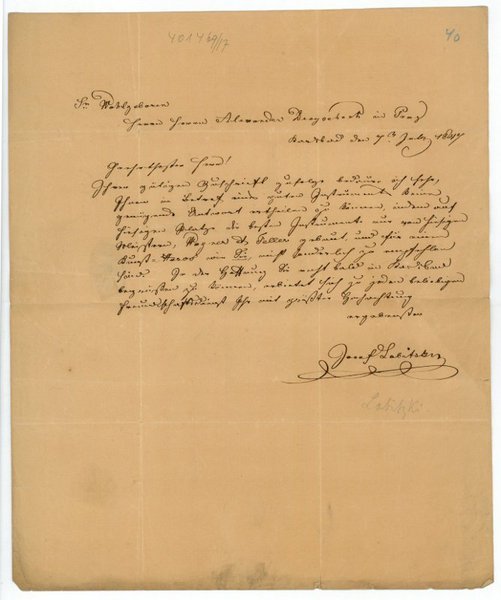 40
Sr Wohlgeboren
Herrn Herrn Alexander Dreyschock in Prag
Karlsbad den 7n July 1847
Geehrtester Herr!
Ihrer gütigen Zuschrift zufolge bedaure ich sehr,
Ihnen in Betref eines guten Instruments keine
genügende Antwort ertheilen zu können, indem auf
hiesigem Platze die besten Instrumente nur von hiesigen
Meistern, gebaut, und für einen
Kunst-Heros wie Sie, nicht sonderlich zu empfehlen
sind. In der Hoffnung Sie recht bald in Karlsbad
begrüßen zu können, erbietet sich zu jedem beliebigen
Freundschaftsdienst Ihr mit größter Hochachtung
ergebenster
Josef Labitzky
Labitzki